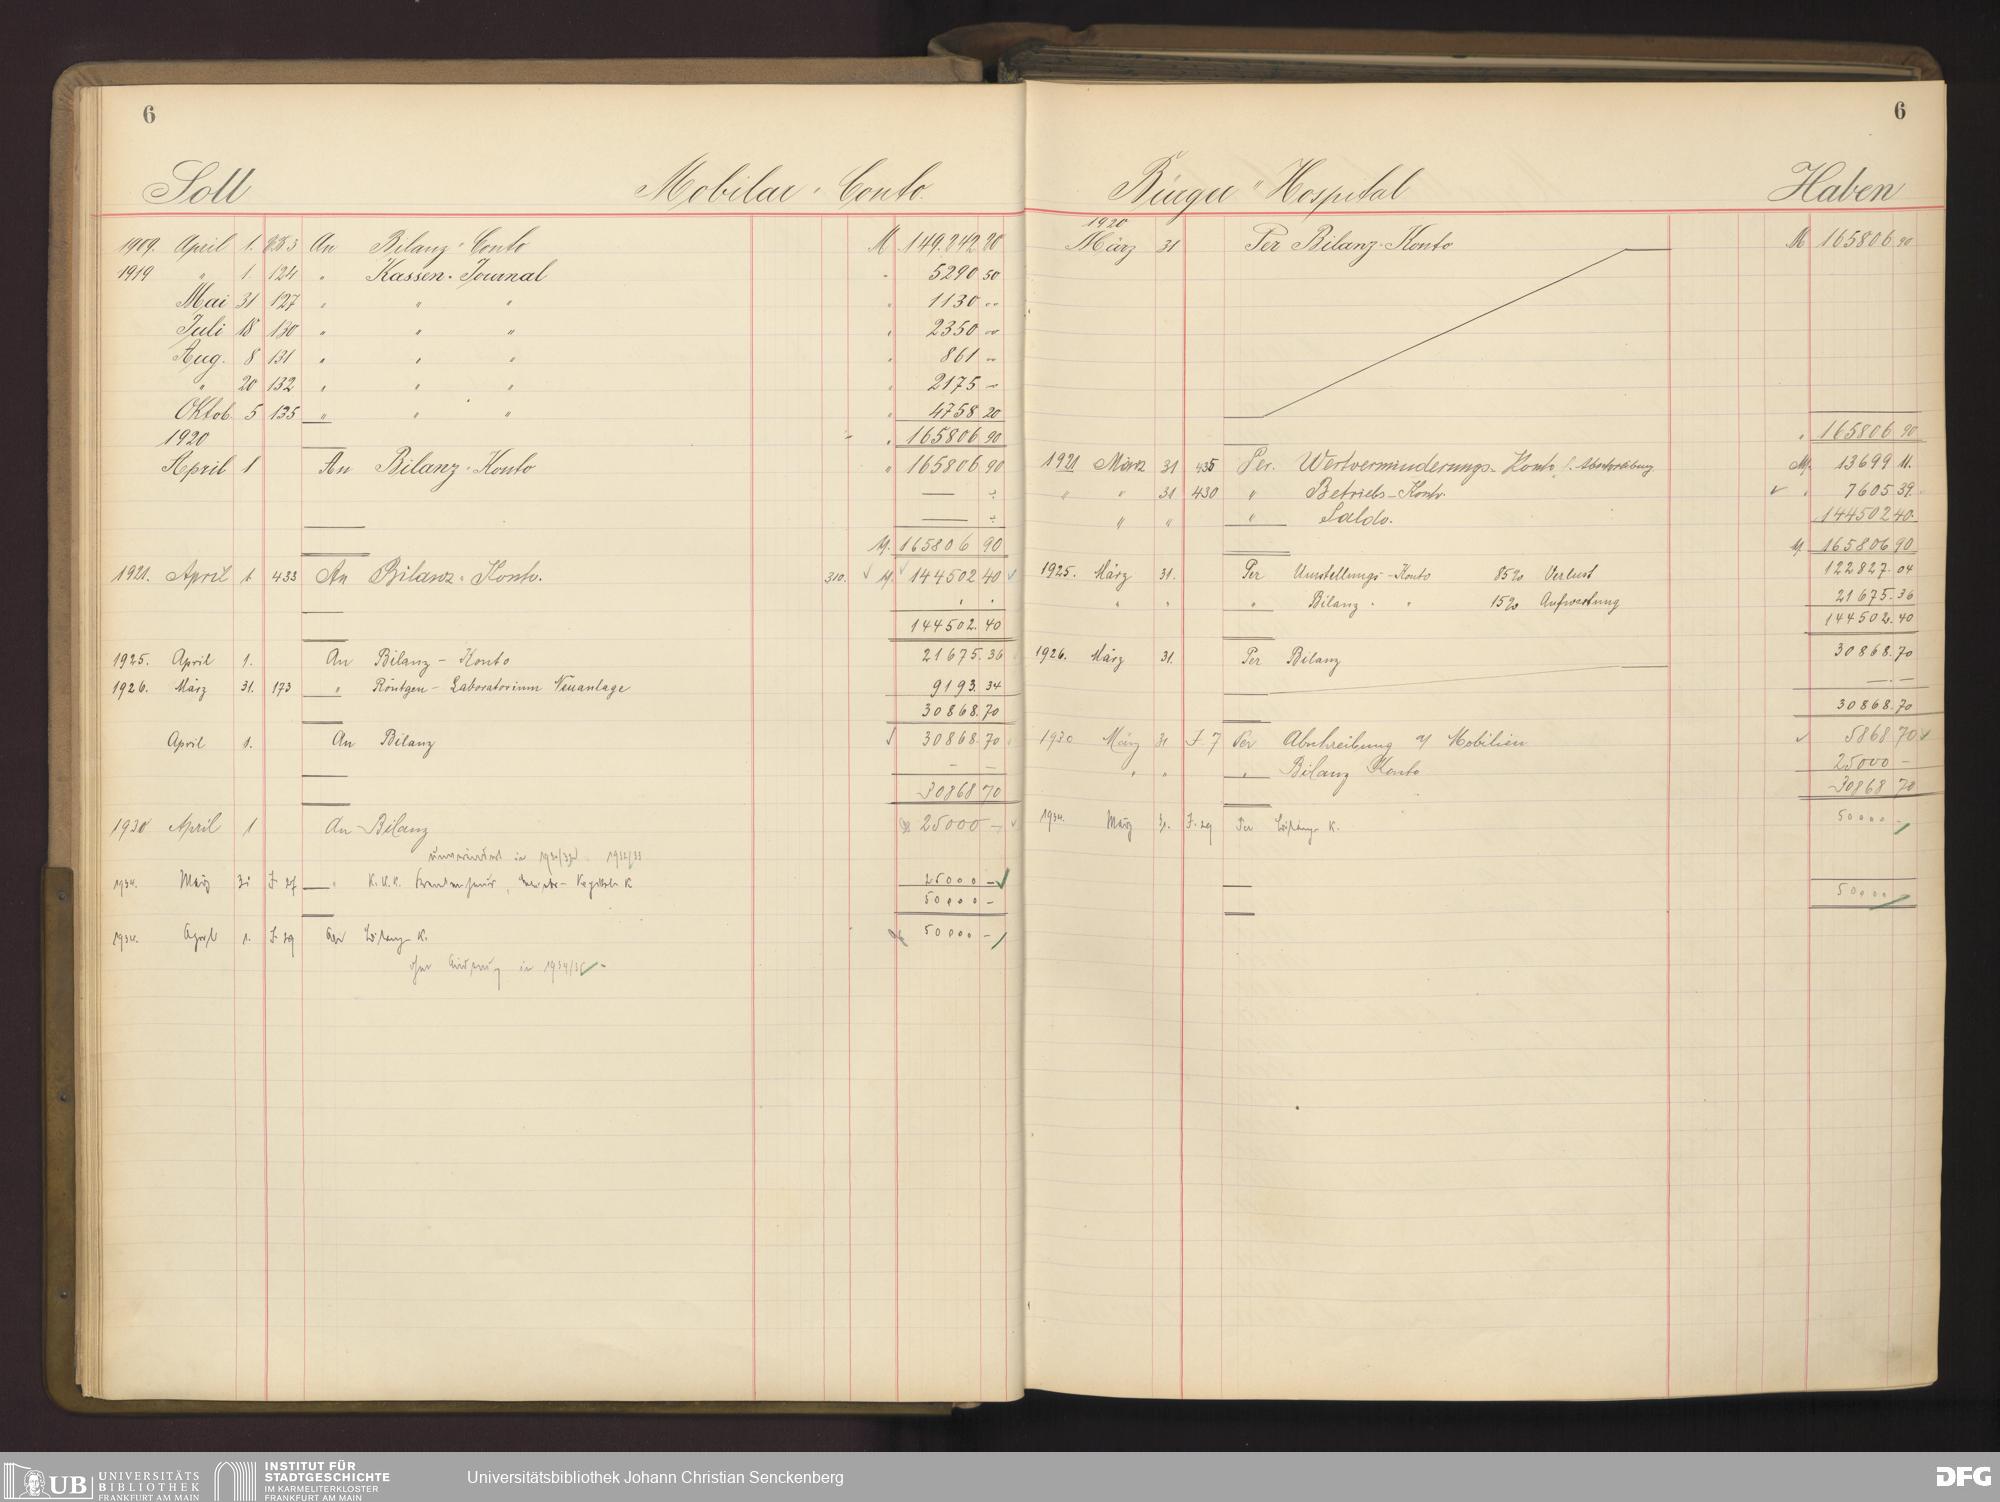 6
Soll Mobilar-Conto.
1909. April 1. An Bilanz-Conto M 149.242 20
1919 " 1. 124 " Kassen-Journal " 5290 50
Mai 31 127 " " " " 1130 --
Juli 18 130 " " " " 2350 --
Aug. 8 131 " " " " 861 --
" 20 132 " " " " 2175 --
Oktob. 5 135 " " " " 4758 20
1920 " 165806 90
April 1 An Bilanz-Konto " 165806 90
M. 165806 90
1921. April 1. 433 An Bilanz-Konto. 310. M. 144502 40
144502.40
1925. April 1. An Bilanz-Konto 21675.36
1926. März 31. 173 " Röntgen-Laboratorium Neuanlage 9193.34
30868.70
April 1. An Bilanz 30868.70
30868 70
1930 April 1 An Bilanz 25000 -
unverändert in 1932/33
1934. März 31 K. 25000 -
50000 -
1934. April 1. J. 29 K. 50000 -
in 1934/35
6
Bürger-Hospital Haben
1920
März 31 Per Bilanz-Konto M 165806 90
" 165806 90
1921 März 31 435 Per. Wertverminderungs-Konto f. Abschreibung M. 13699 11.
" " 31 430 " Betriebs-Konto. " 7605 39.
" " " Saldo. 144502 40.
M. 165806 90
1925. März 31. Per Umstellungs-Konto 85% Verlust 122827.04
" " " Bilanz- " 15% Aufwertung 21675.36
144502.40
1926. März 31. Per Bilanz 30868.70
30868.70
1930 März 31 J 7 Per Abschreibung a/ Mobilien 5868 70
" " " Bilanz Konto 25000 -
30868 70
1934. März 31. J. 29 Per Bilanz K. 50000 -
50000 -
UB UNIVERSITÄTS
BIBLIOTHEK
FRANKFURT AM MAIN
INSTITUT FÜR
STADTGESCHICHTE
IM KARMELITERKLOSTER
FRANKFURT AM MAIN
Universitätsbibliothek Johann Christian Senckenberg
DFG